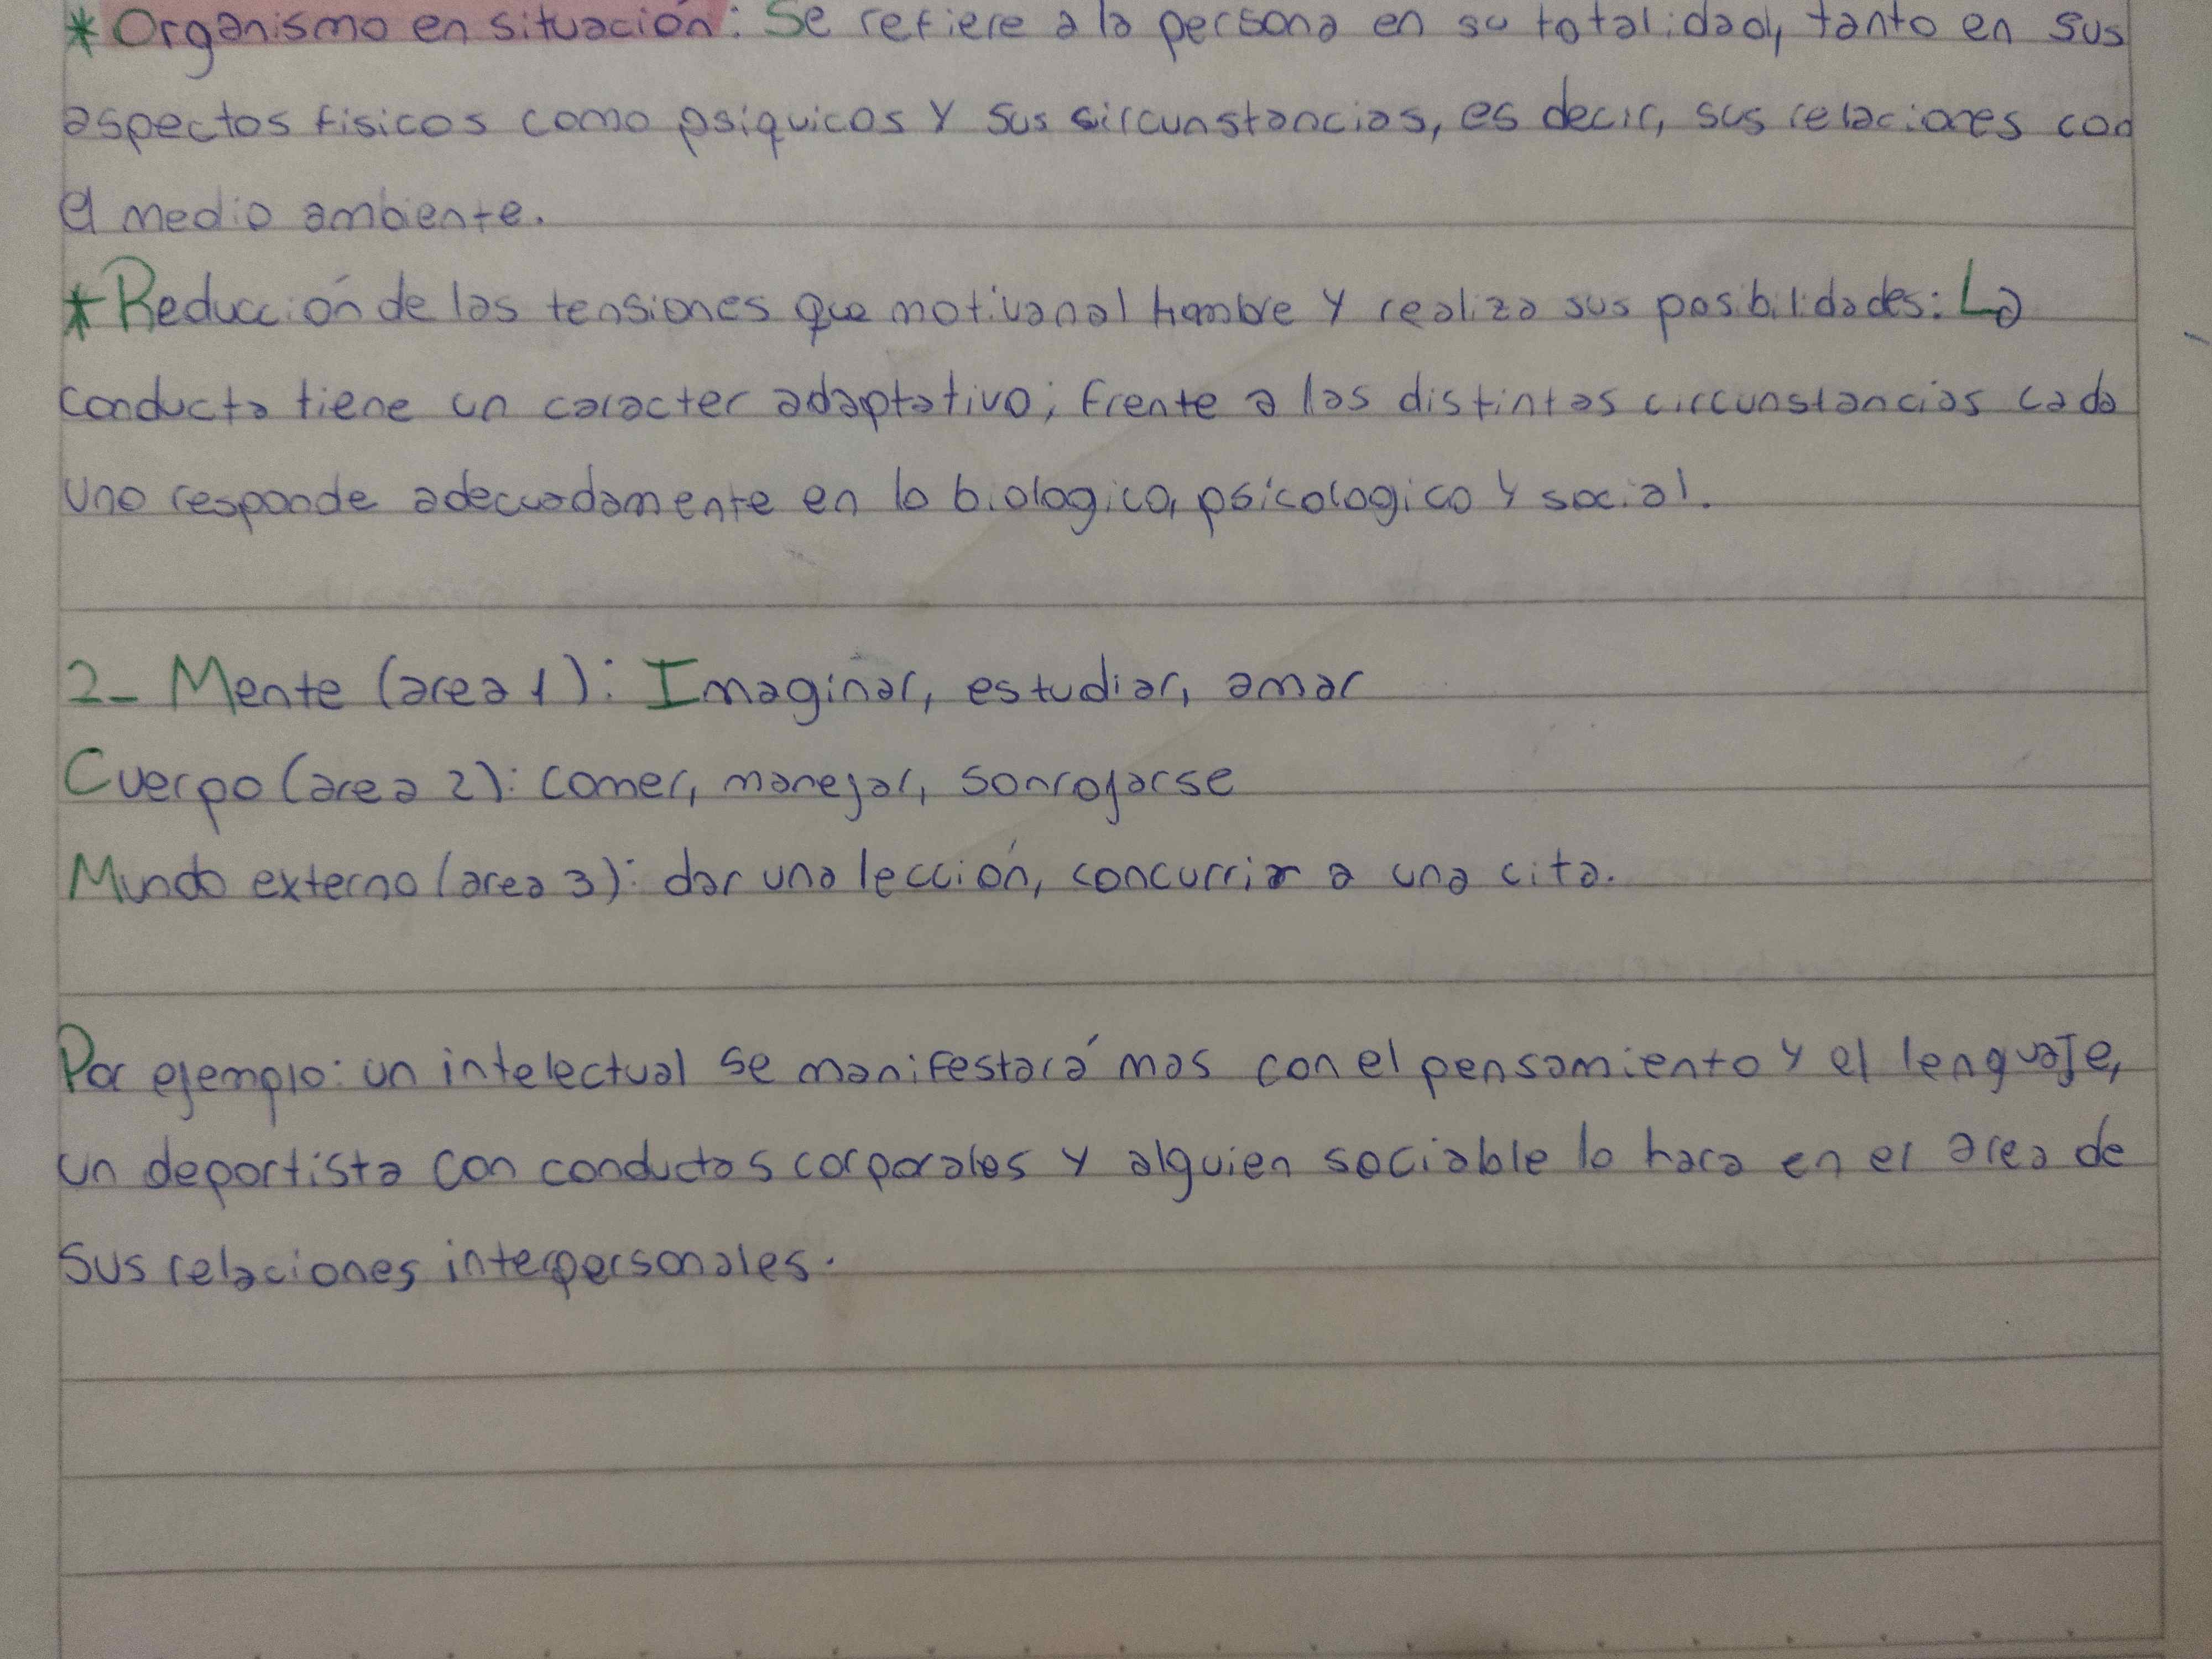 * Organismo en situación: Se refiere a la persona en su totalidad, tanto en sus
aspectos fisicos como psiquicos y sus circunstancias, es decir, sus relaciones con
el medio ambiente.
* Reducción de las tensiones que motivan al hombre y realiza sus posibilidades: La
conducta tiene un caracter adaptativo; frente a las distintas circunstancias cada
uno responde adecuadamente en lo biologico, psicologico y social.
2- Mente (area 1): Imaginar, estudiar, amar
Cuerpo (area 2): comer, manejar, sonrojarse
Mundo externo (area 3): dar una lección, concurrir a una cita.
Por ejemplo: un intelectual se manifestará mas con el pensamiento y el lenguaje,
un deportista con conductas corporales y alguien sociable lo hara en el area de
sus relaciones interpersonales.